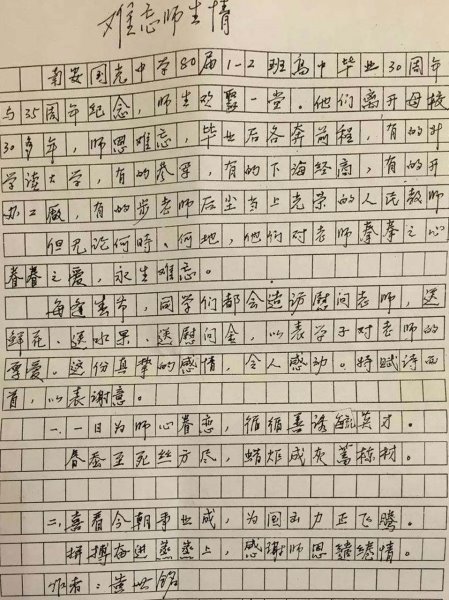 难忘师生情
南安国光中学80届1-2班高中毕业30周年
与35周年纪念，师生欢聚一堂。他们离开母校
30多年，师恩难忘，毕业后各奔前程，有的升
学读大学，有的参军，有的下海经商，有的开
办工厂，有的步老师后尘当上光荣的人民教师
但无论何时、何地，他们对老师拳拳之心
眷眷之爱，永生难忘。
每逢春节，同学们都会造访慰问老师，送
鲜花、送水果、送慰问金，以表学子对老师的
尊爱。这份真挚的感情，令人感动。特赋诗两
首，以表谢意。
一、一日为师心眷恋，循循善诱毓英才。
春蚕至死丝方尽，蜡炬成灰为栋材。
二、喜看今朝事业成，为国出力正飞腾。
拼搏奋进蒸蒸上，感谢师恩缱绻情。
作者：